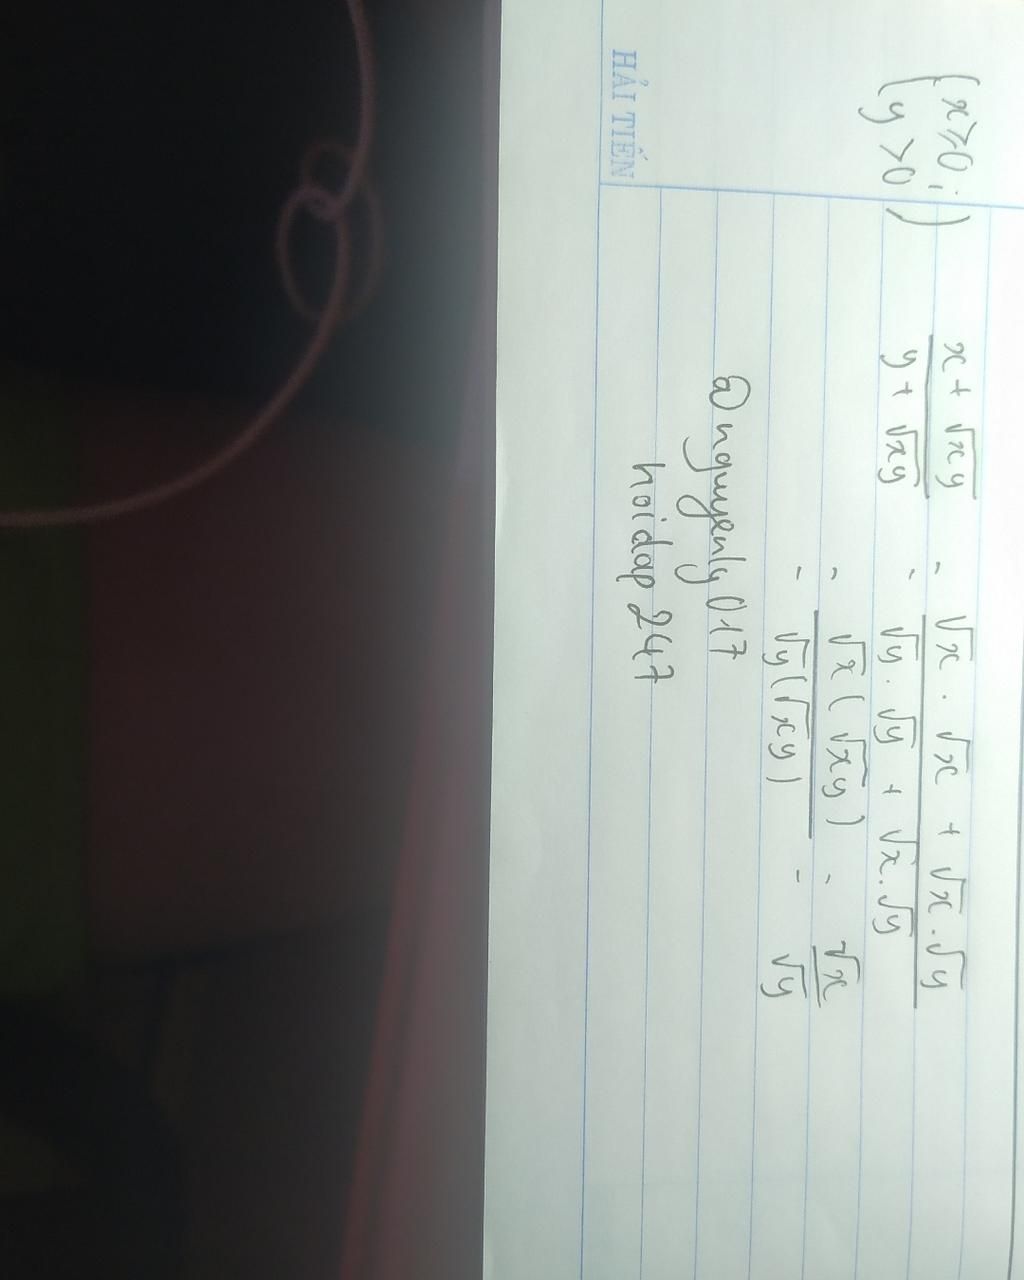 (x≥0; y>0)
x + √xy / y + √xy = √x . √x + √x . √y / √y . √y + √x . √y
= √x (√xy) / √y (√xy) = √x / √y
@nguyenly017
hoidap247
HẢI TIẾN